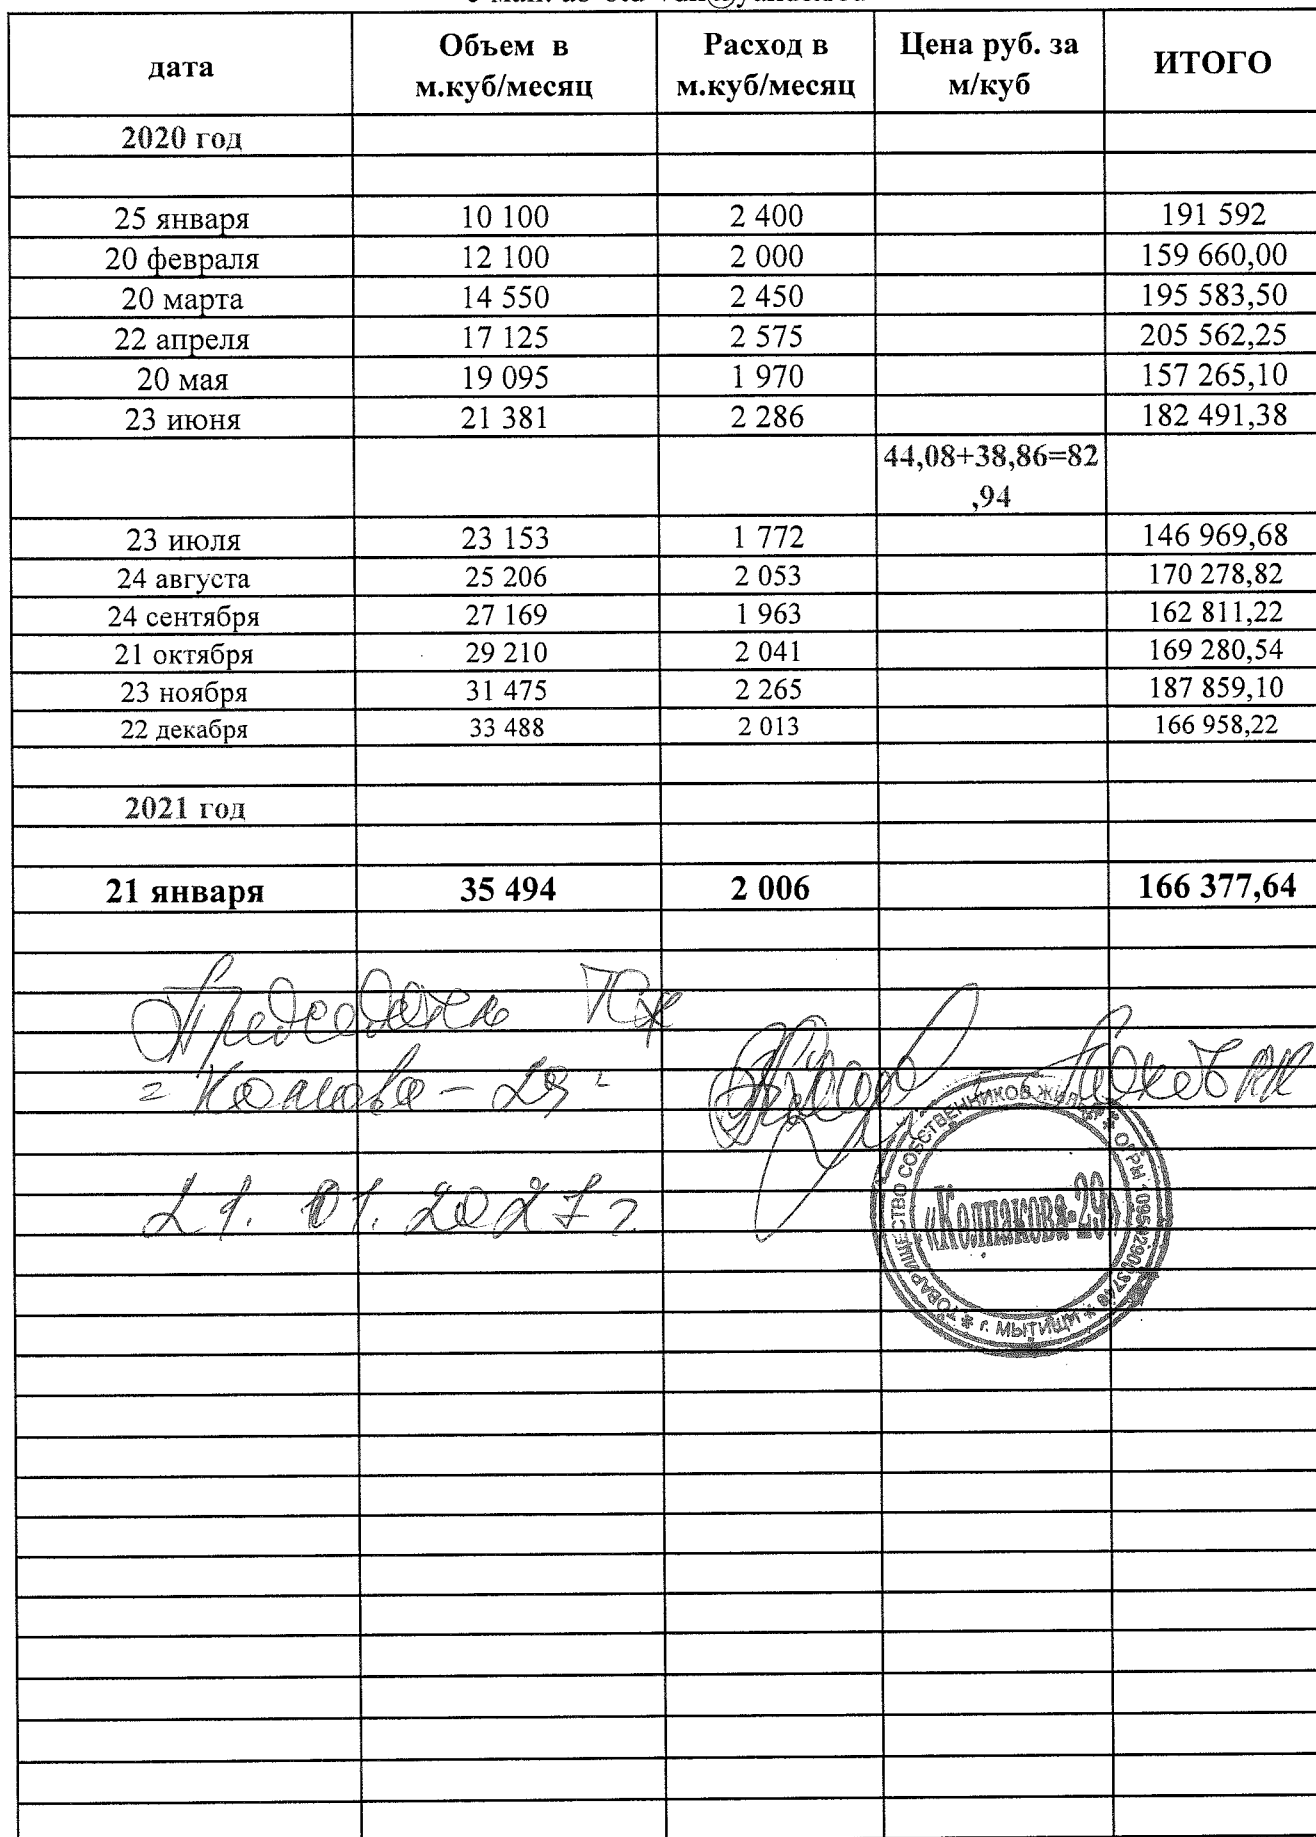 дата Объем в м.куб/месяц Расход в м.куб/месяц Цена руб. за м/куб ИТОГО
2020 год
25 января 10 100 2 400 191 592
20 февраля 12 100 2 000 159 660,00
20 марта 14 550 2 450 195 583,50
22 апреля 17 125 2 575 205 562,25
20 мая 19 095 1 970 157 265,10
23 июня 21 381 2 286 182 491,38
44,08+38,86=82
,94
23 июля 23 153 1 772 146 969,68
24 августа 25 206 2 053 170 278,82
24 сентября 27 169 1 963 162 811,22
21 октября 29 210 2 041 169 280,54
23 ноября 31 475 2 265 187 859,10
22 декабря 33 488 2 013 166 958,22
2021 год
21 января 35 494 2 006 166 377,64
Председатель
21. 01. 2021 г
ТОВАРИЩЕСТВО СОБСТВЕННИКОВ ЖИЛЬЯ * ОГРН
«Колпакова-29»
* г. МЫТИЩИ *